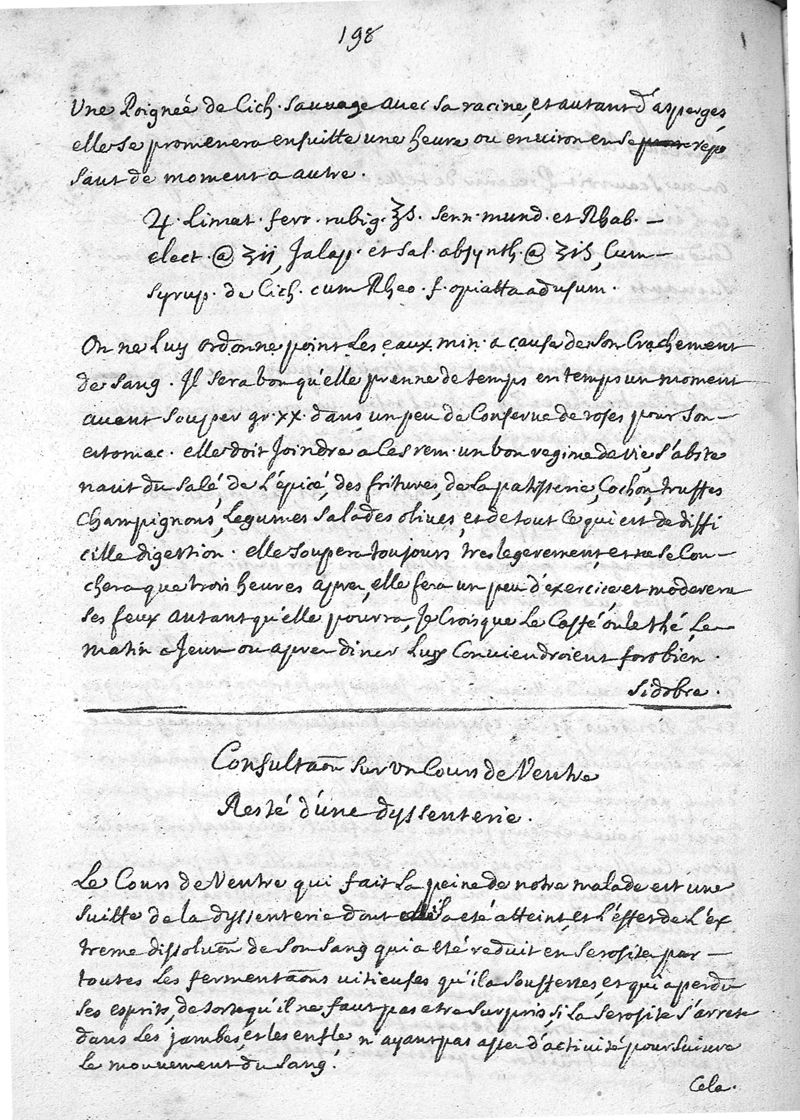 198
Une Poignée de Cich. sauvage avec sa racine, et autant d'asperges
elle se promenera ensuitte une heure ou environ en se repo
sant de moment a autre.
♃. Limat. ferr. rubig. ℥s. senn. mund. et Rhab. —
elect. @ ʒij, Jalap. et sal. absynth. @ ʒiſs, Cum —
syrup. de Cich. cum Rheo. f. opiatta ad usum.
On ne Luy ordonne point Les eaux min. a cause de son Crachement
de sang. Il sera bon qu'elle prenne de temps en temps un moment
avant souper gr. xx. dans un peu de Conserve de roses pour son —
estomac. elle doit Joindre a Ces rem. un bon regime de vie, s'abste
nant du salé, de L'épicé, des fritures, de la patisserie, Cochon, truffes
Champignons, Legumes salades olives, et de tout Ce qui est de diffi
cille digestion. elle soupera toujours tres legerement, et ne se Cou —
chera que trois heures apres, elle fera un peu d'exercice et moderera
ses feux autant qu'elle pourra, Je Crois que Le Caffé ou le thé, Le
matin a Jeun ou apres diner Luy Conviendroient fort bien.
Sidobre.
Consultaõn sur un Cours de Ventre
Resté d'une dyssenterie.
Le Cours de Ventre qui fait La peine de notre malade est une
suitte de la dyssenterie dont il a eté atteint, et L'effet de L'ex
treme dissoluõn de son sang qui a eté reduit en serosite par —
toutes Les fermentaõns vitieuses qu'il a souffertes, et qui a perdu
ses esprits, de sorte qu'il ne faut pas etre surpris, si La serosite s'arrete
dans Les jambes, et les enfle, n'ayant pas assez d'activité pour suivre
Le mouvement du sang.
Cela.